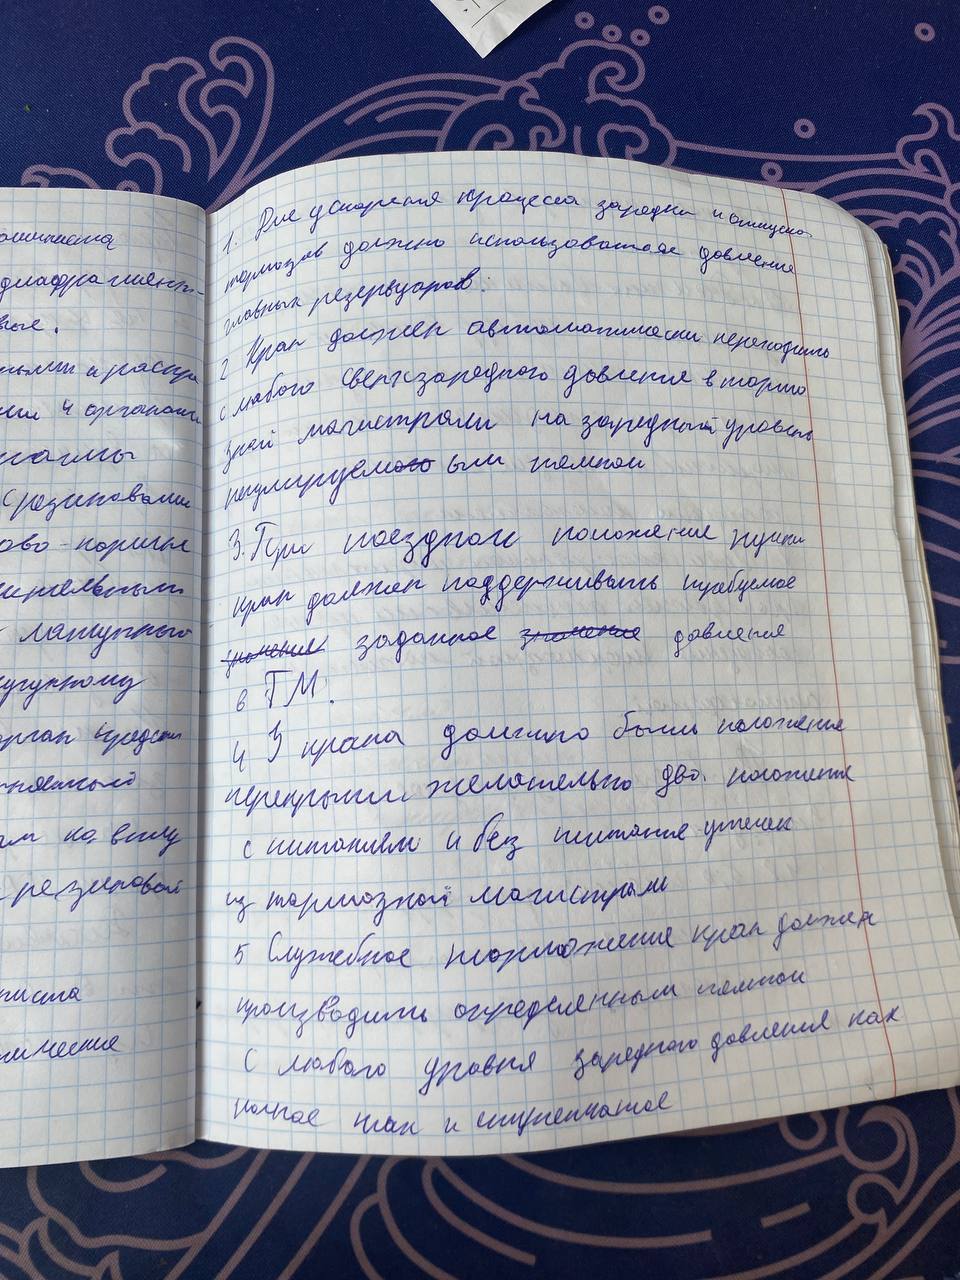 ошиниста
диафрагменн-
вые.
ными и распре
ии и органами
рагмы
с резиновыми
ово-поршне
ительным
латунного
чугунному
орган предст
ам на виду
резиновой
ниста
нические
1. Для ускорения процесса зарядки и отпуска
тормозов должно использоваться давление
главных резервуаров.
2 Кран должен автоматически переходить
с любого сверхзарядного давления в тормо
зной магистрали на зарядный уровень
регулируемого ым темпом
3. При поездном положение ручки
кран должен поддерживать требуемое
значение заданное значение давления
в ТМ.
4 У крана должно быть положение
перекрыши желательно два. положение
с питанием и без питания утечек
из тормозной магистрали
5 Служебное торможение кран должен
производить определенным темпом
с любого уровня зарядного давления как
полное так и ступенчатое